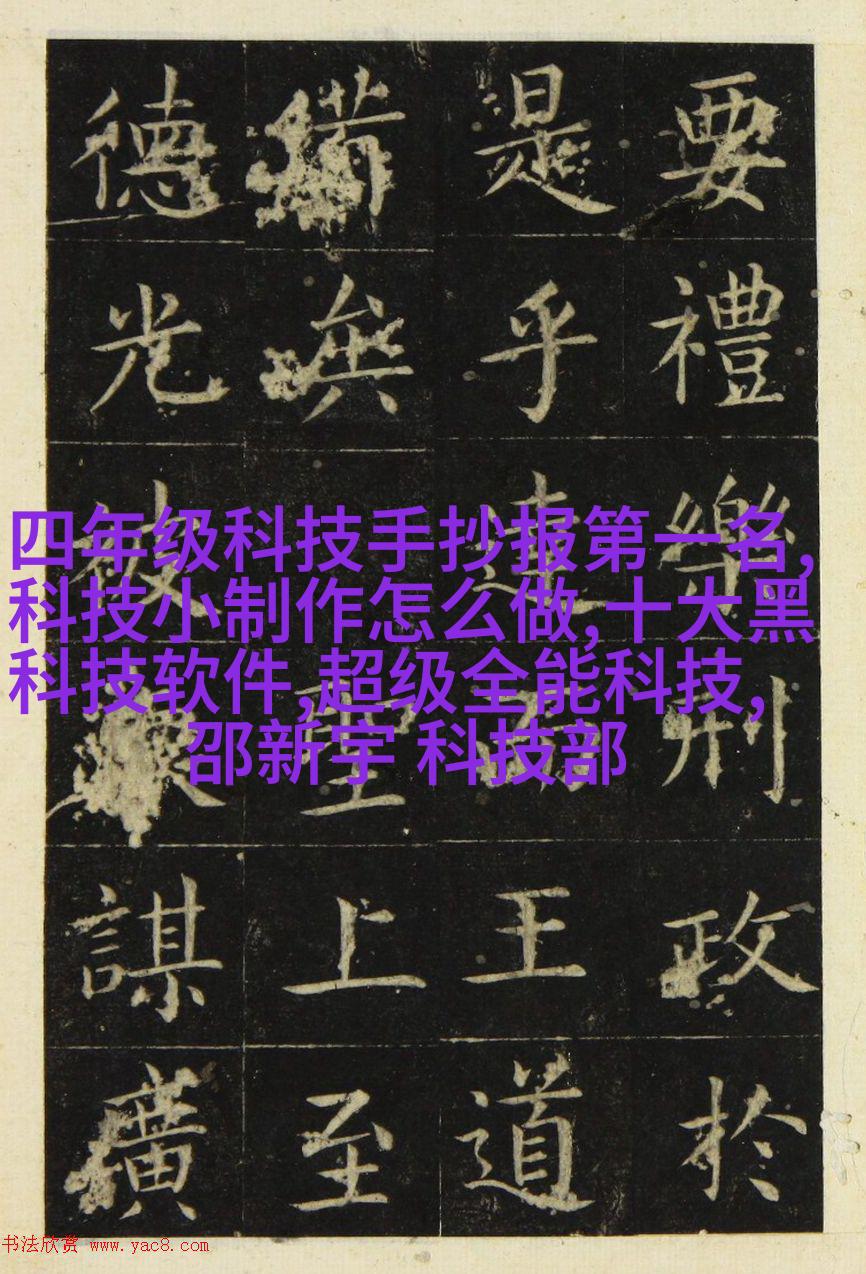 四年级科技手抄报第一名,
科技小制作怎么做,十大黑
科技软件,超级全能科技,
邵新宇 科技部
要禮樂刑政於
是乎達王道
備聖上至
德光被謀廣
书法欣赏 www.yac8.com